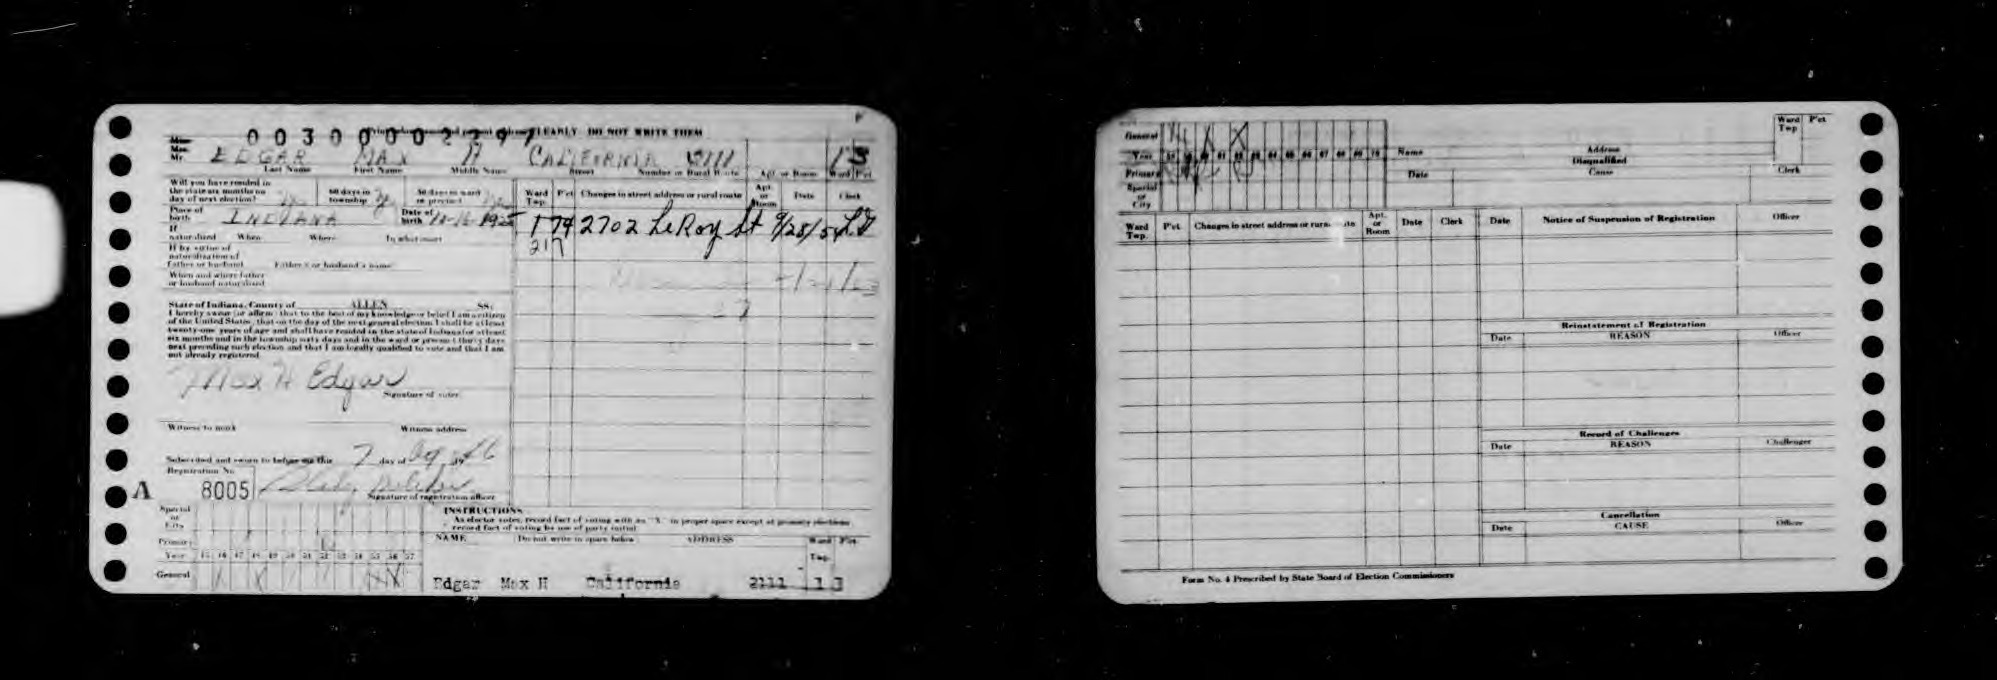 00300002297
CLEARLY DO NOT WRITE THEM
Miss
Mrs.
Mr. EDGAR MAX H CALIFORNIA 2111 1 3
Last Name First Name Middle Name Street Number or Rural Route Apt. or Room Ward P'ct
Will you have resided in the state six months on day of next election? 60 days in township 30 days in ward or precinct
Ward Twp. P'ct Changes in street address or rural route Apt. or Room Date Clerk
Place of birth INDIANA Date of birth
1 74 2702 LeRoy St 9/28/54
217
If naturalized When Where In what court
If by virtue of naturalization of father or husband Father's or husband's name
When and where father or husband naturalized
State of Indiana, County of ALLEN SS:
I hereby swear (or affirm) that to the best of my knowledge or belief I am a citizen
of the United States, that on the day of the next general election I shall be at least
twenty-one years of age and shall have resided in the state of Indiana for at least
six months and in the township sixty days and in the ward or precinct thirty days
next preceding such election and that I am legally qualified to vote and that I am
not already registered
Max H Edgar
Signature of voter
Witness to mark Witness address
Subscribed and sworn to before me this 7 day of 19 46
Registration No.
A 8005
Signature of registration officer
Special or City
Primary
Year 45 46 47 48 49 50 51 52 53 54 55 56 57
General
INSTRUCTIONS
As elector votes, record fact of voting with an "X" in proper space except at primary elections
record fact of voting by use of party initial
NAME Do not write in space below ADDRESS Ward Twp. P'ct
Edgar Max H California 2111 1 3
General
Year 61 64 65 66 67 68 69 70
Primary
Special or City
Name Address Ward Twp P'ct
Disqualified
Date Cause Clerk
Ward Twp. P'ct Changes in street address or rural route Apt. or Room Date Clerk
Date Notice of Suspension of Registration Officer
Reinstatement of Registration
Date REASON Officer
Record of Challenges
Date REASON Challenger
Cancellation
Date CAUSE Officer
Form No. 4 Prescribed by State Board of Election Commissioners